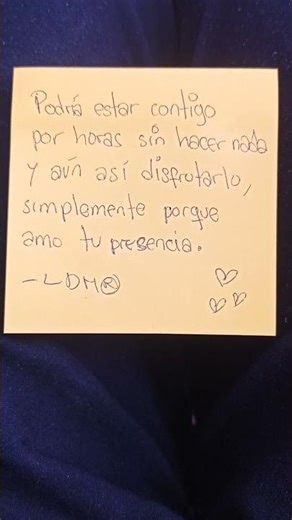 Podría estar contigo
por horas sin hacer nada
y aún así disfrutarlo,
simplemente porque
amo tu presencia.
-LDM®